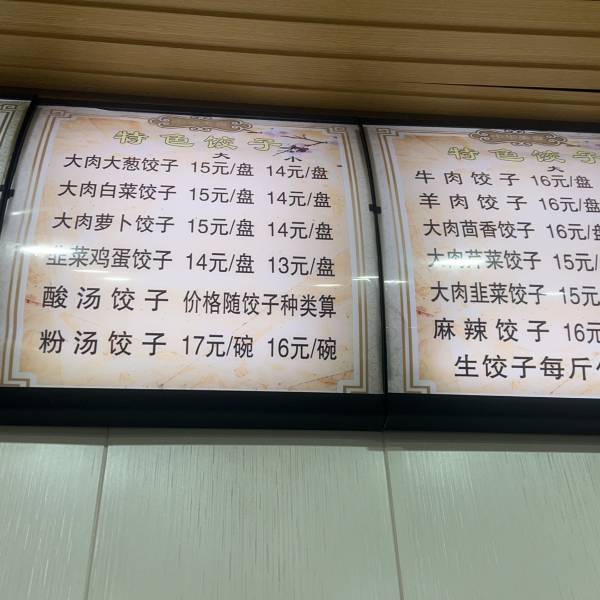 特色饺子
大 小
大肉大葱饺子 15元/盘 14元/盘
大肉白菜饺子 15元/盘 14元/盘
大肉萝卜饺子 15元/盘 14元/盘
韭菜鸡蛋饺子 14元/盘 13元/盘
酸汤饺子 价格随饺子种类算
粉汤饺子 17元/碗 16元/碗
特色饺子
大
牛肉饺子 16元/盘
羊肉饺子 16元/盘
大肉茴香饺子 16元/盘
大肉芹菜饺子 15元/
大肉韭菜饺子 15元
麻辣饺子 16元
生饺子每斤